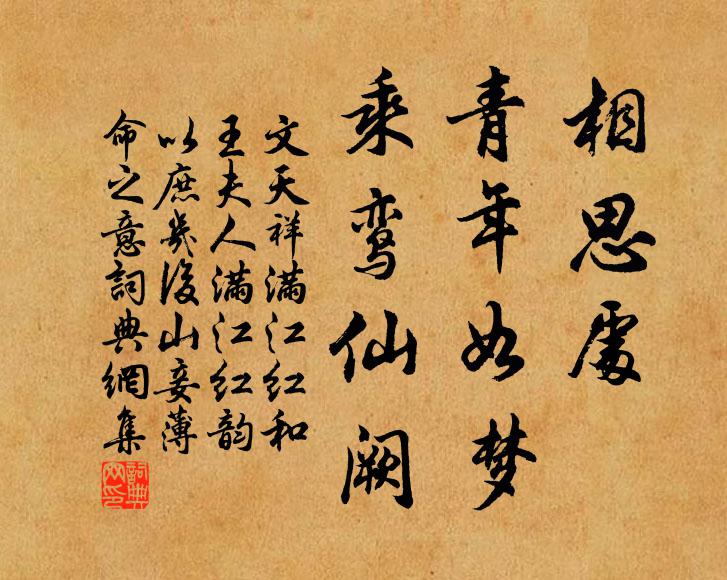 相思處
青年如梦
乘鸾仙阙
文天祥满江红和
王夫人满江红韵
以庶幾後山妾薄
命之意詞典網集
詞典網印